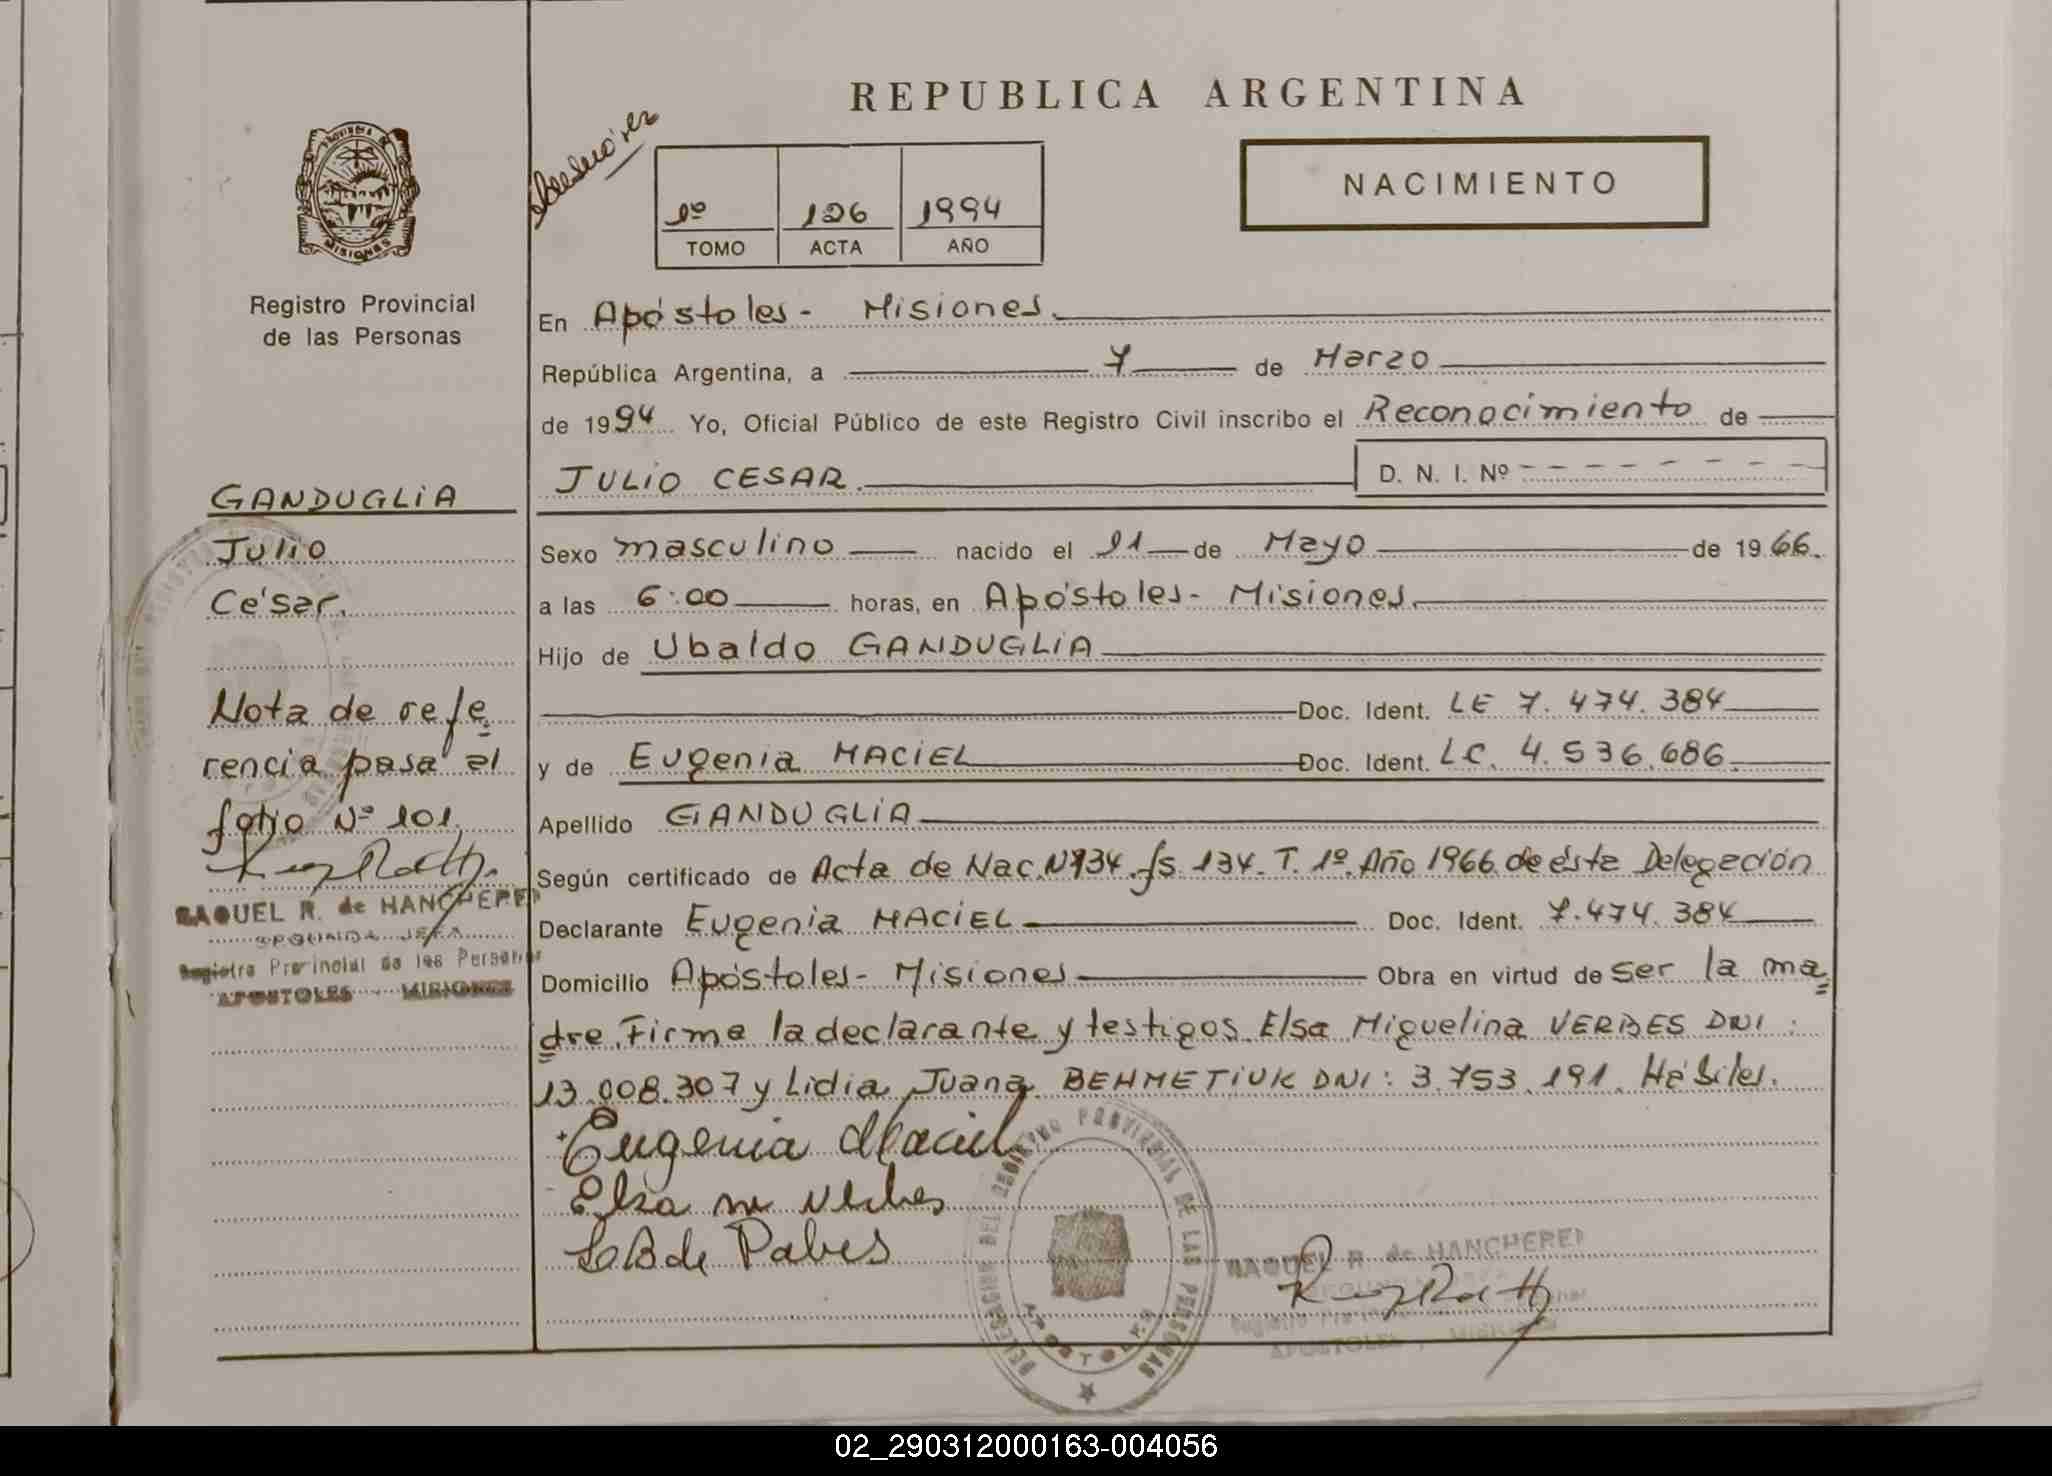 REPUBLICA ARGENTINA
NACIMIENTO
1º 126 1994
TOMO ACTA AÑO
PROVINCIA DE
MISIONES
Registro Provincial
de las Personas
En Apóstoles - Misiones.
República Argentina, a 7 de Marzo
de 1994 Yo, Oficial Público de este Registro Civil inscribo el Reconocimiento de
JULIO CESAR. D. N. I. Nº - - - - - - - -
GANDUGLIA
Julio
César.
Sexo masculino nacido el 21 de Mayo de 1966.
a las 6:00 horas, en Apóstoles - Misiones.
Hijo de Ubaldo GANDUGLIA
Doc. Ident. LE 7.474.384
y de Eugenia MACIEL Doc. Ident. LC. 4.536.686
Apellido GANDUGLIA
Según certificado de Acta de Nac. Nº134. fs. 134. T. 1º. Año 1966 de ésta Delegación
Declarante Eugenia MACIEL Doc. Ident. 7.474.384
Domicilio Apóstoles - Misiones Obra en virtud de ser la ma
dre. Firma la declarante y testigos Elsa Miguelina VERBES DNI:
13.008.307 y Lidia Juana BEHMETIUK DNI: 3.753.191. Hábiles.
Nota de refe
rencia pasa al
folio Nº 101.
RAQUEL R. de HANCHEREI
SEGUNDA JEFA
Registro Provincial de las Personas
APOSTOLES - MISIONES
Eugenia Maciel
Elsa M Verbes
L B de Pabes
DELEGACION DEL REGISTRO PROVINCIAL DE LAS PERSONAS
APOSTOLES
RAQUEL R. de HANCHEREI
SEGUNDA JEFA
Registro Provincial de las Personas
APOSTOLES - MISIONES
02_290312000163-004056